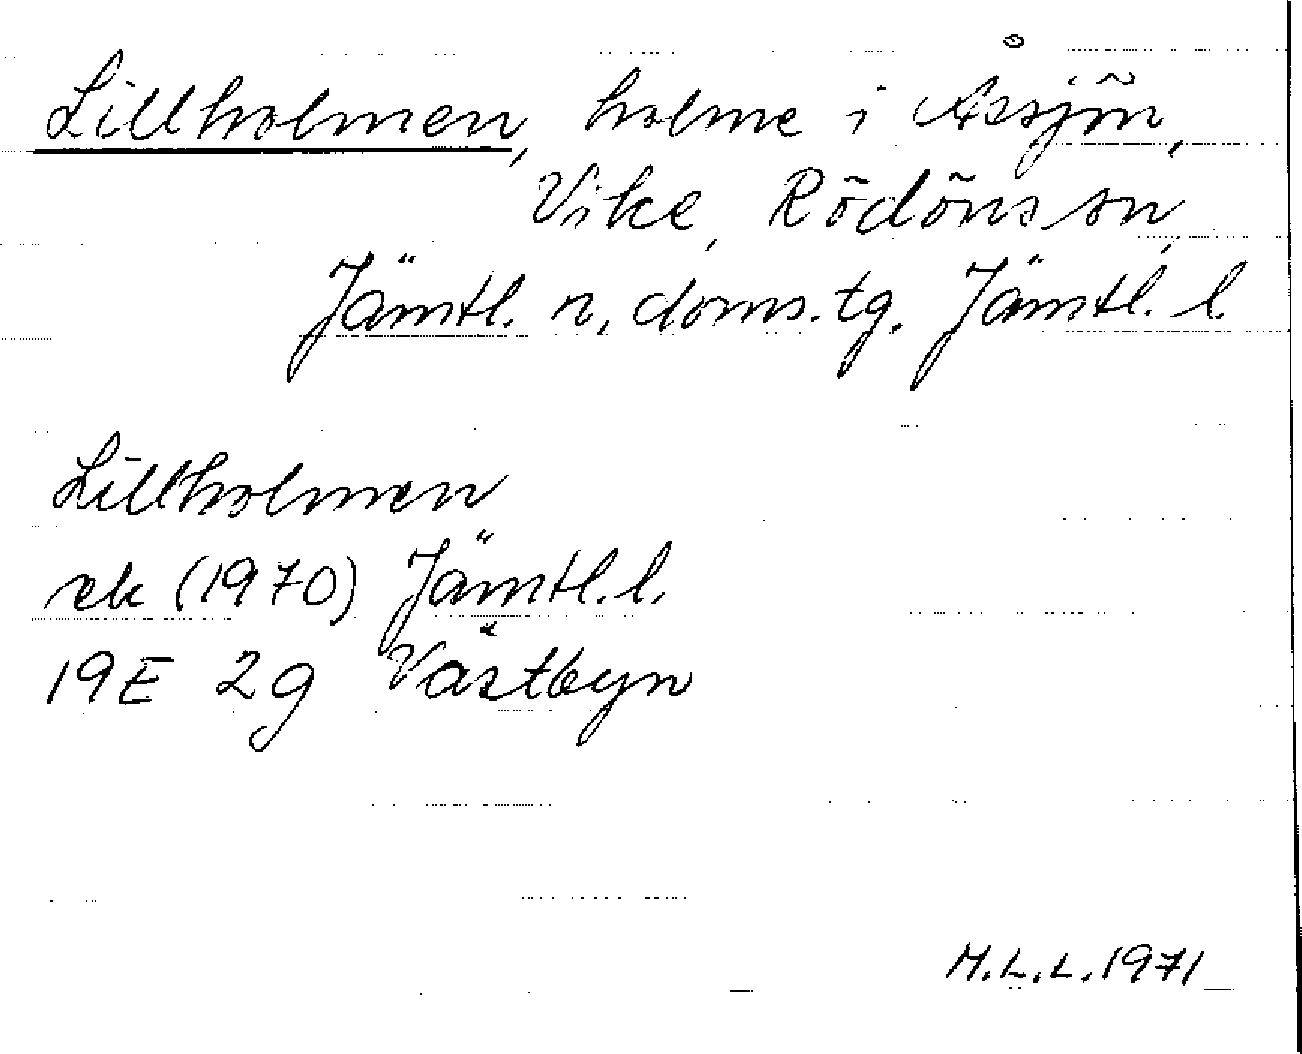 Lillholmen, holme i Åssjön,
Vike, Rödöns sn,
Jämtl. n. doms. tg. Jämtl. l.
Lillholmen
ek (1970) Jämtl. l.
19E 2g Västbyn
M.L.L. 1971